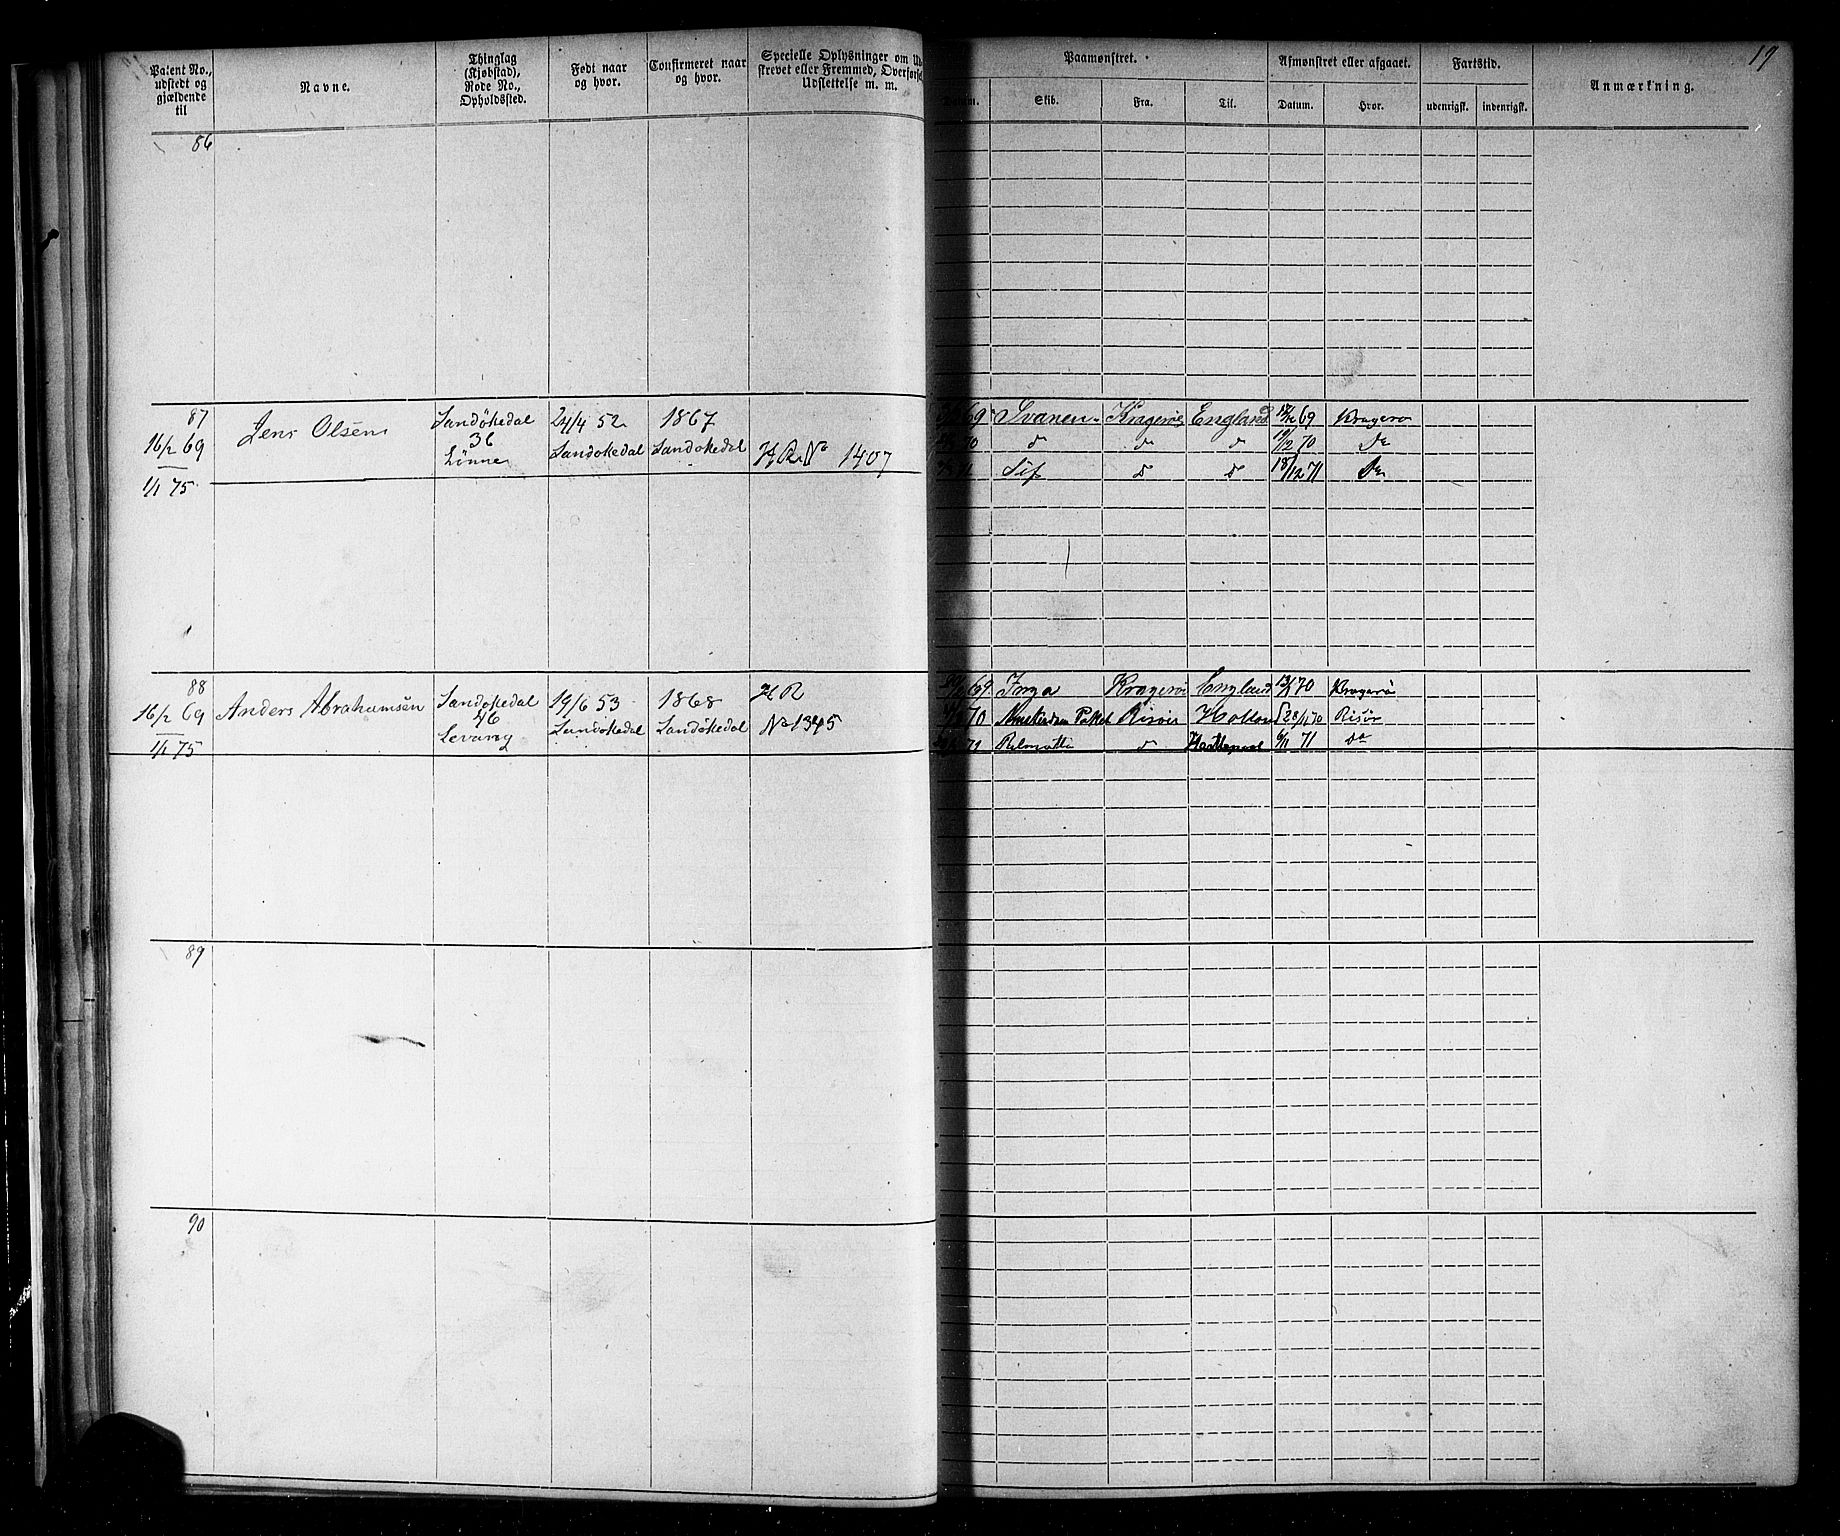 19
Patent No., udstedt og gjældende til
Navne.
Thinglag (Kjøbstad), Rode No., Opholdssted.
Født naar og hvor.
Confirmeret naar og hvor.
Specielle Oplysninger om Ud-
skrevet eller Fremmed, Overførsel
Udslettelse m. m.
Paamønstret.
Datum. Skib. Fra. Til.
Afmønstret eller afgaaet.
Datum. Hvor.
Fartstid.
udenrigsk. indenrigsk.
Anmærkning.
86
87
16/2 69
1/1 75
Jens Olsen
Sandøkedal
36
Lønne
24/4 52
Sandøkedal
1867
Sandøkedal
HR No 1407
69 Svanen Kragerøe England 69 Kragerø
70 d d d 19/12 70 Do
71 Sif d d 18/12 71 Do
88
16/2 69
1/1 75
Anders Abrahamsen
Sandøkedal
46
Levang
19/6 53
Sandøkedal
1868
Sandøkedal
HR
No 1345
69 Inga Kragerø England 70 Kragerø
70 Amsterdam Paket Risøer Holland 70 Risør
71 d 71 Do
89
90